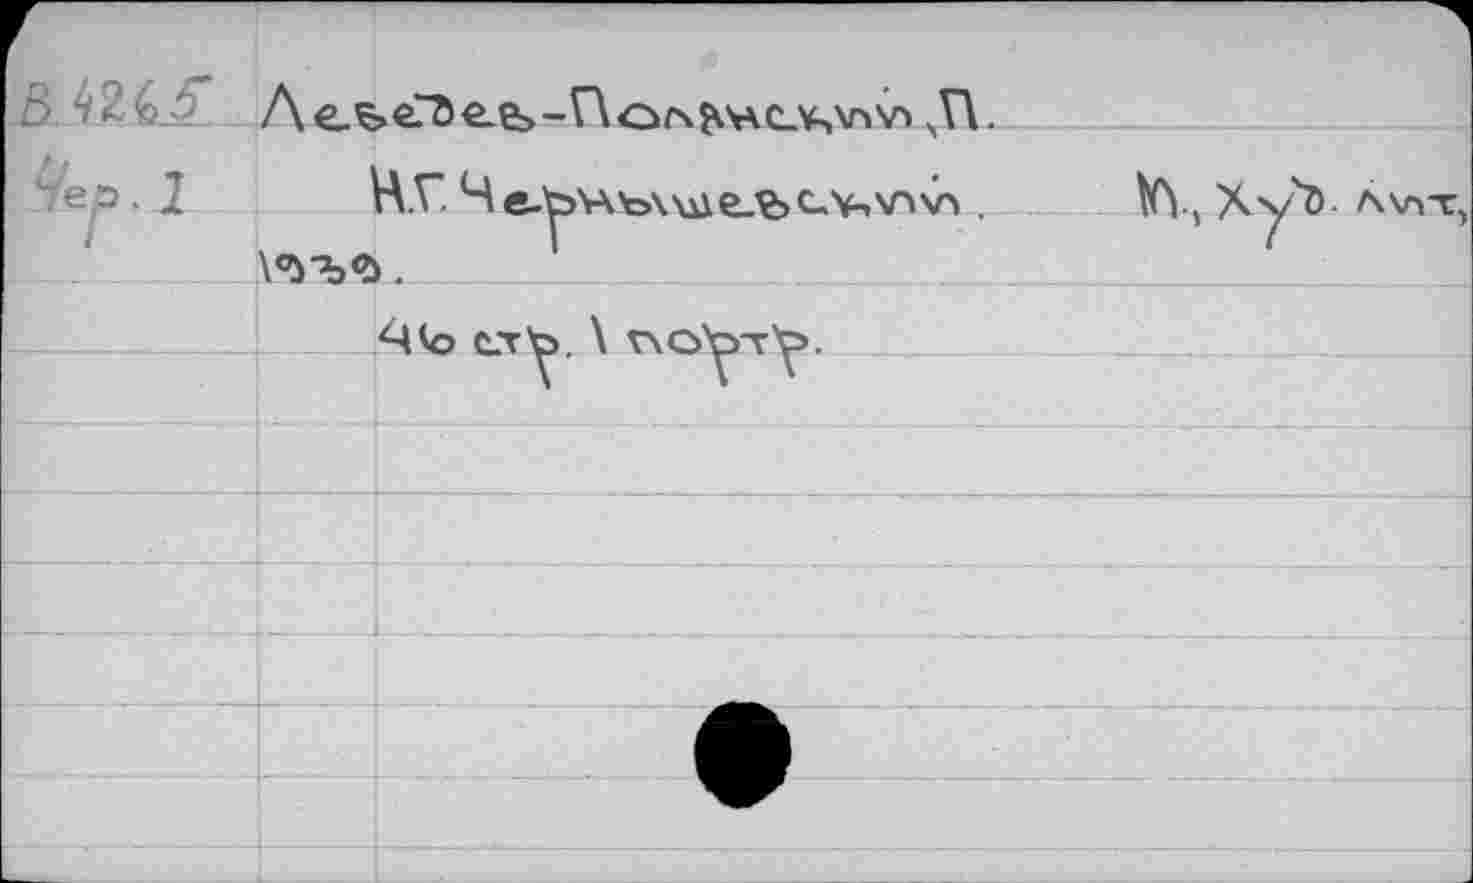 В 4265 Лебедев-Полянский, П.
Чер. 1 Н.Г. Чернышевский. М., Худ. лит,
1939.
46 стр. 1 портр.